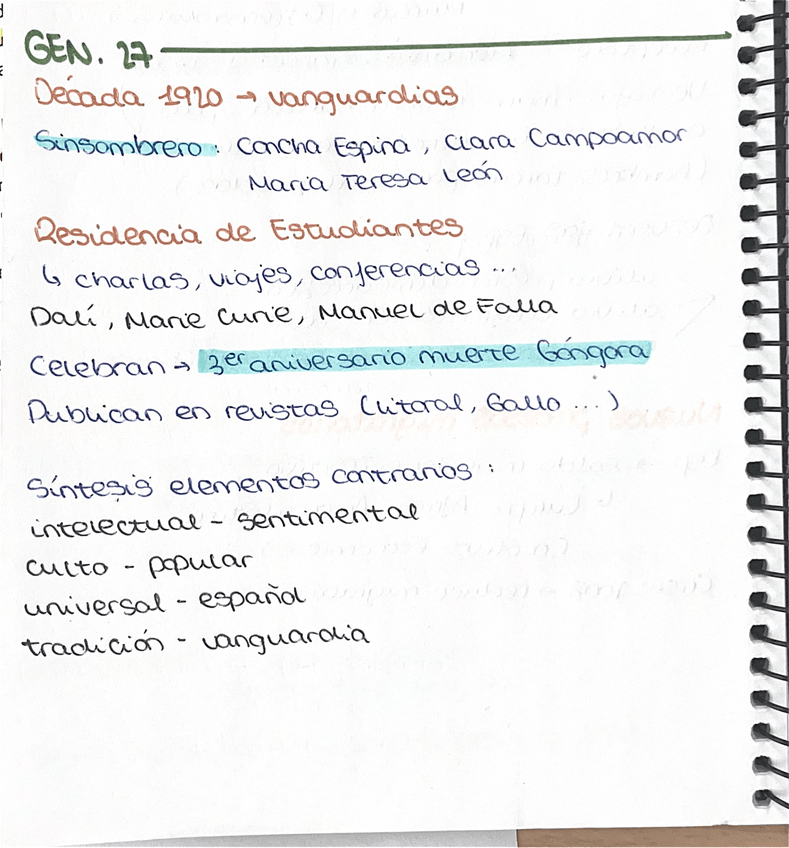 GEN. 27
Década 1920 → vanguardias
Sinsombrero: Concha Espina, Clara Campoamor
María Teresa León
Residencia de Estudiantes
↳ charlas, viajes, conferencias ...
Dalí, Marie Curie, Manuel de Falla
Celebran → 3er aniversario muerte Góngora
Publican en revistas (Litoral, Gallo ...)
Síntesis elementos contrarios:
intelectual - sentimental
culto - popular
universal - español
tradición - vanguardia